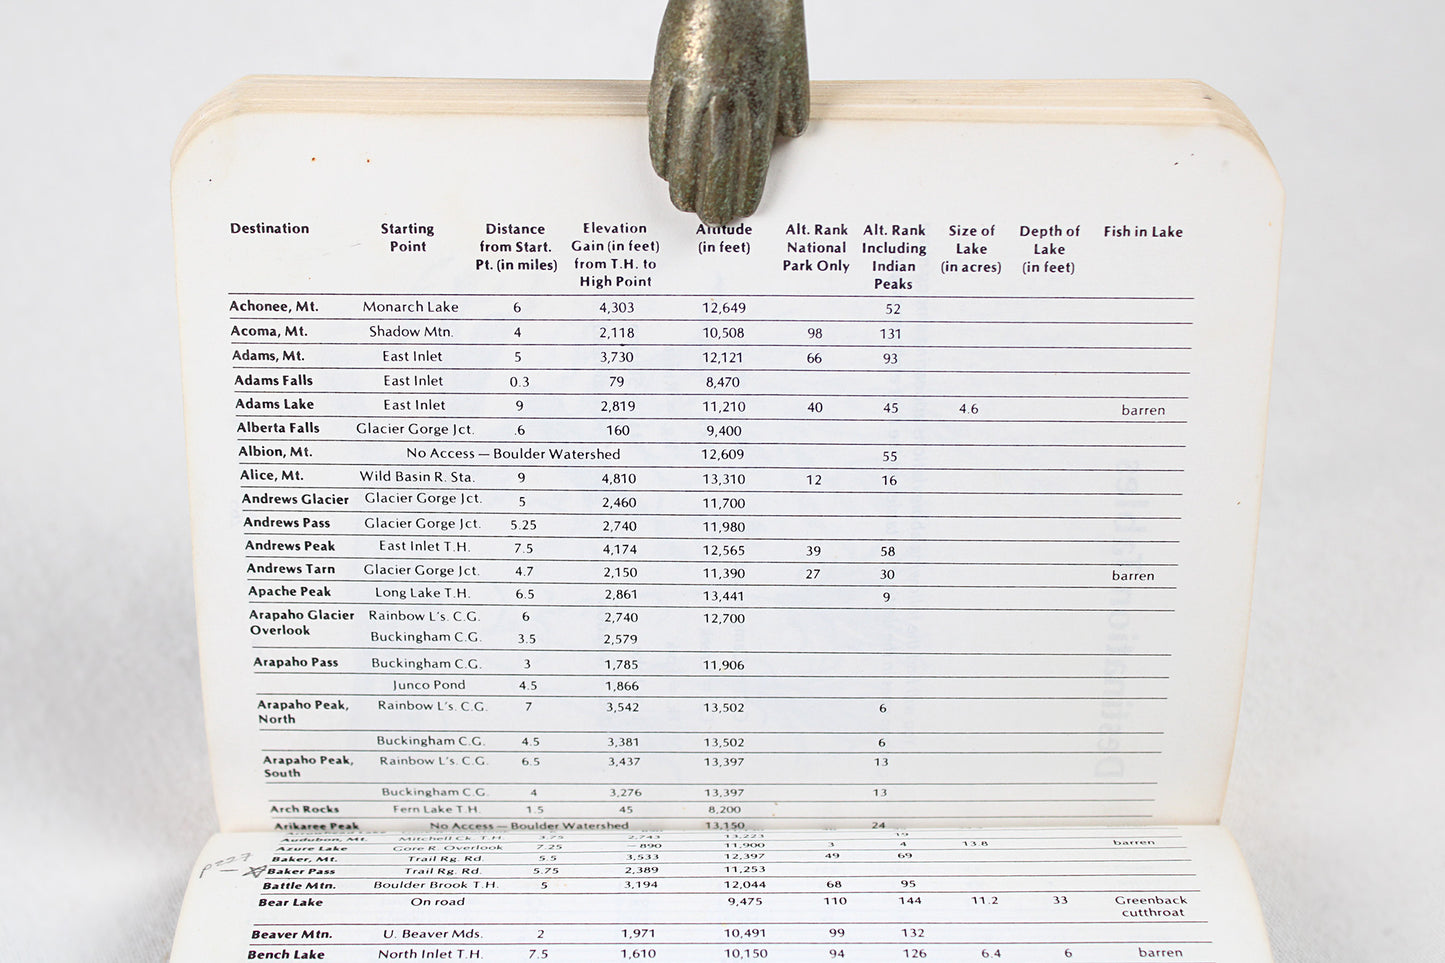 Destination Starting Point Distance from Start. Pt. (in miles) Elevation Gain (in feet) from T.H. to High Point Altitude (in feet) Alt. Rank National Park Only Alt. Rank Including Indian Peaks Size of Lake (in acres) Depth of Lake (in feet) Fish in Lake
Achonee, Mt. Monarch Lake 6 4,303 12,649 52
Acoma, Mt. Shadow Mtn. 4 2,118 10,508 98 131
Adams, Mt. East Inlet 5 3,730 12,121 66 93
Adams Falls East Inlet 0.3 79 8,470
Adams Lake East Inlet 9 2,819 11,210 40 45 4.6 barren
Alberta Falls Glacier Gorge Jct. .6 160 9,400
Albion, Mt. No Access — Boulder Watershed 12,609 55
Alice, Mt. Wild Basin R. Sta. 9 4,810 13,310 12 16
Andrews Glacier Glacier Gorge Jct. 5 2,460 11,700
Andrews Pass Glacier Gorge Jct. 5.25 2,740 11,980
Andrews Peak East Inlet T.H. 7.5 4,174 12,565 39 58
Andrews Tarn Glacier Gorge Jct. 4.7 2,150 11,390 27 30 barren
Apache Peak Long Lake T.H. 6.5 2,861 13,441 9
Arapaho Glacier Rainbow L's. C.G. 6 2,740 12,700
Overlook Buckingham C.G. 3.5 2,579
Arapaho Pass Buckingham C.G. 3 1,785 11,906
Junco Pond 4.5 1,866
Arapaho Peak, Rainbow L's. C.G. 7 3,542 13,502 6
North
Buckingham C.G. 4.5 3,381 13,502 6
Arapaho Peak, Rainbow L's. C.G. 6.5 3,437 13,397 13
South
Buckingham C.G. 4 3,276 13,397 13
Arch Rocks Fern Lake T.H. 1.5 45 8,200
Arikaree Peak No Access — Boulder Watershed 13,150 24
Audubon, Mt. Mitchell Ck. T.H. 3.75 2,743 13,223 19
Azure Lake Gore R. Overlook 7.25 −890 11,900 3 4 13.8 barren
Baker, Mt. Trail Rg. Rd. 5.5 3,533 12,397 49 69
p227 Baker Pass Trail Rg. Rd. 5.75 2,389 11,253
Battle Mtn. Boulder Brook T.H. 5 3,194 12,044 68 95
Bear Lake On road 9,475 110 144 11.2 33 Greenback
cutthroat
Beaver Mtn. U. Beaver Mds. 2 1,971 10,491 99 132
Bench Lake North Inlet T.H. 7.5 1,610 10,150 94 126 6.4 6 barren